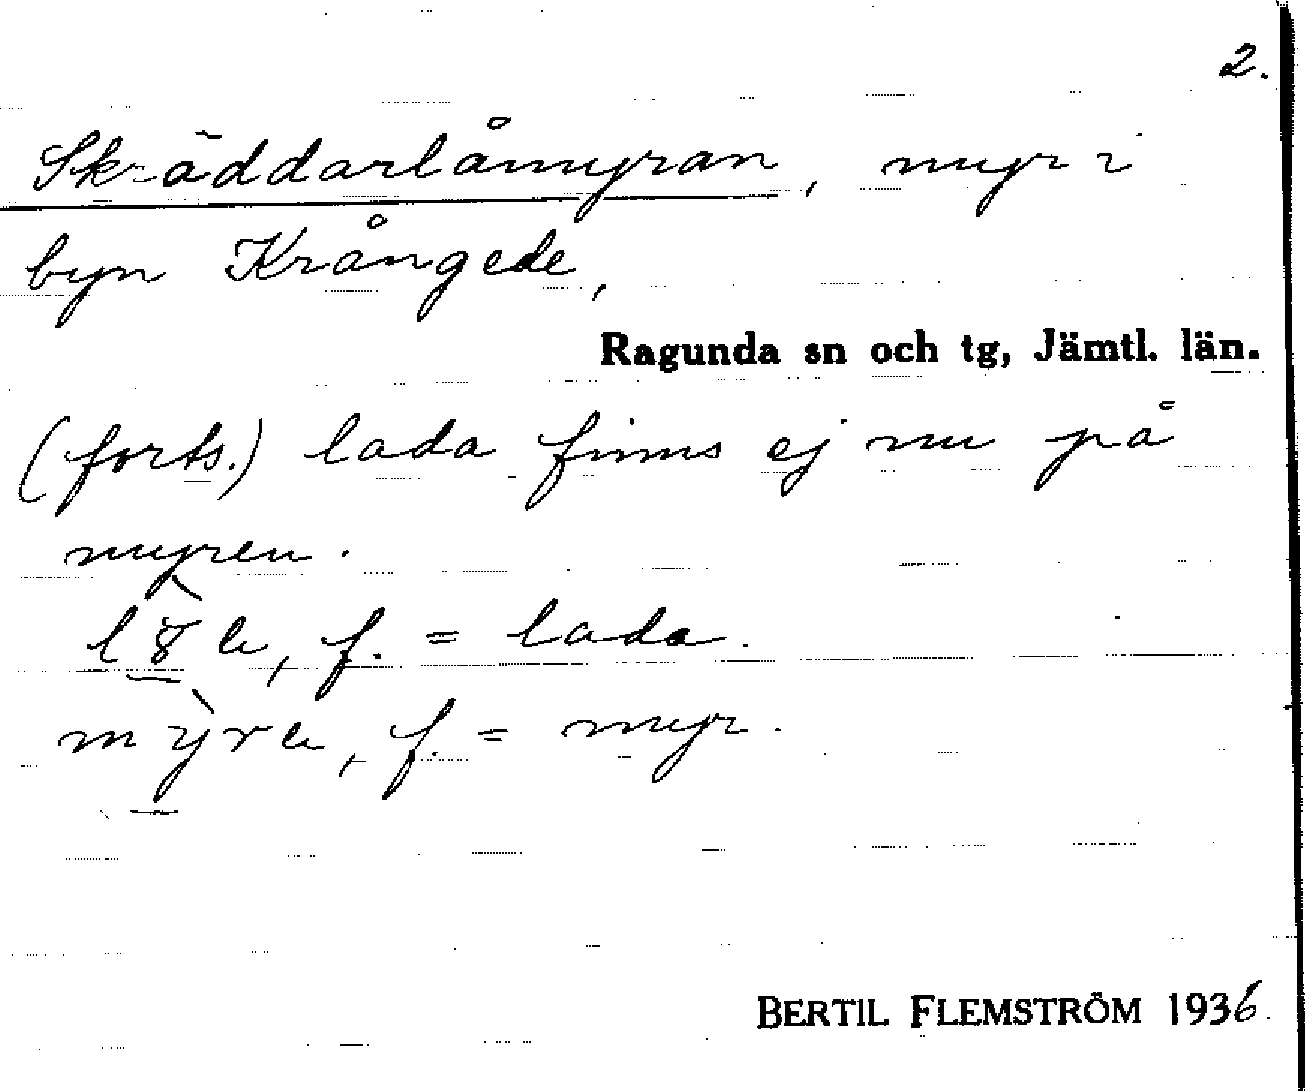 2.
Skräddarlåmyran, myr i
byn Krångede,
Ragunda sn och tg, Jämtl. län.
(forts.) lada finns ej nu på
myren.
f. = lada.
f. = myr.
BERTIL FLEMSTRÖM 1936.